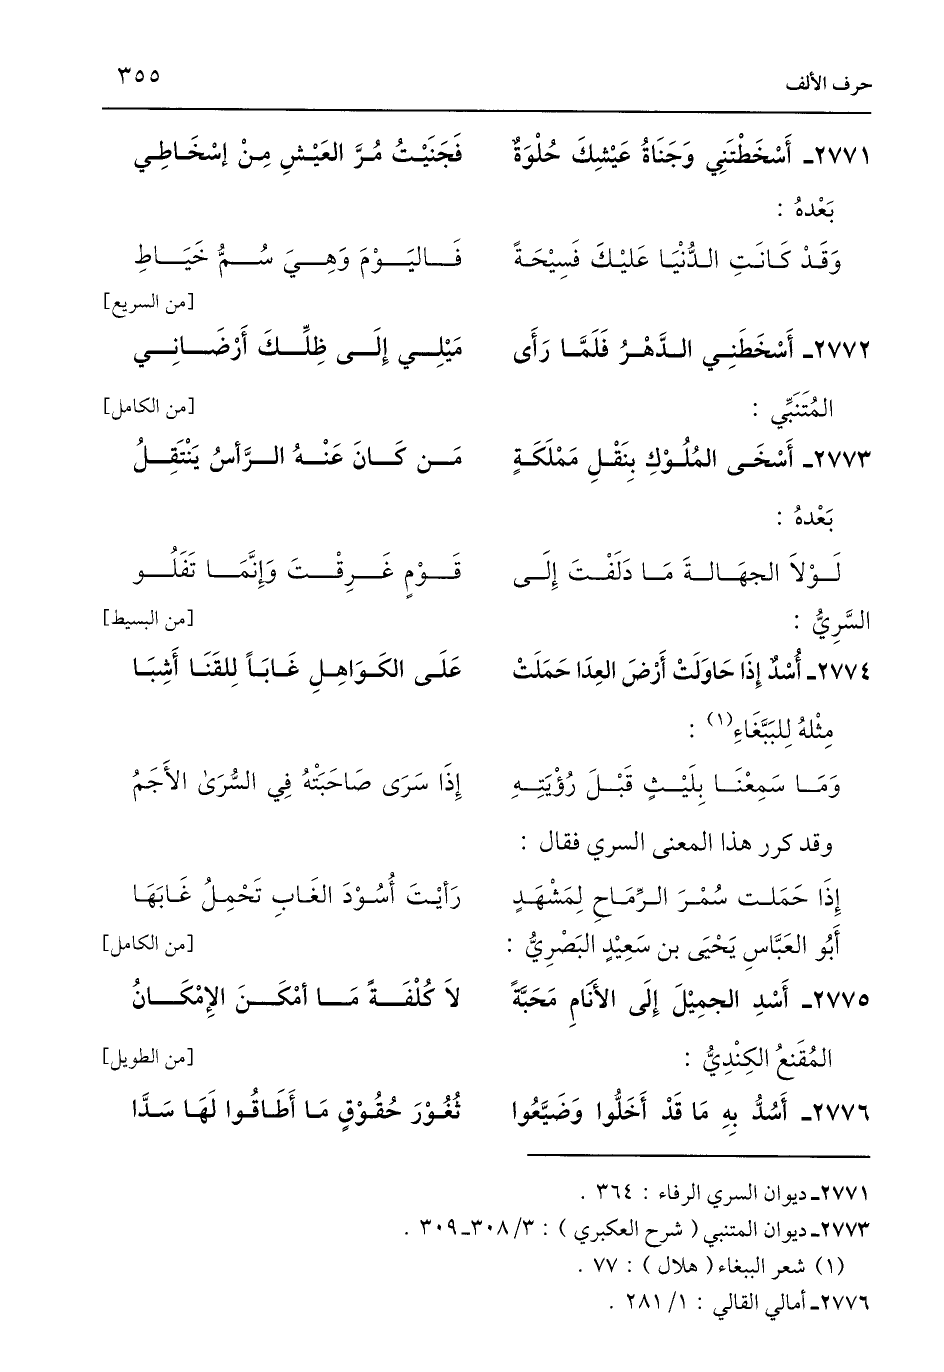 حرف الألف ٣٥٥
٢٧٧١ـ أَسْخَطْتَنِي وَجَنَاةُ عَيْشِكَ حُلْوَةٌ فَجَنَيْتُ مُرَّ العَيْشِ مِنْ إسْخَاطِي
بَعْدهُ :
وَقَدْ كَانَتِ الدُّنْيَا عَلَيْكَ فَسِيْحَةً فَاليَوْمَ وَهِيَ سُمُّ خَيَاطِ
[من السريع]
٢٧٧٢ـ أَسْخَطَنِي الدَّهْرُ فَلَمَّا رَأَى مَيْلِي إِلَى ظِلِّكَ أَرْضَانِي
المُتَنَبِّي : [من الكامل]
٢٧٧٣ـ أَسْخَى المُلُوْكِ بِنَقْلِ مَمْلَكَةٍ مَن كَانَ عَنْهُ الرَّأسُ يَنْتَقِلُ
بَعْدهُ :
لَوْلاَ الجهَالةَ مَا دَلَفْتَ إِلَى قَوْمٍ غَرِقْتَ وَإِنَّمَا تَفَلُو
السَّرِيُّ : [من البسيط]
٢٧٧٤ـ أُسْدٌ إِذَا حَاوَلَتْ أَرْضَ العِدَا حَمَلَتْ عَلَى الكَوَاهِلِ غَابَاً لِلقَنَا أَشِبَا
مِثْلهُ لِلبَبَّغَاءِ(١) :
وَمَا سَمِعْنَا بِلَيْثٍ قَبْلَ رُؤْيَتِهِ إِذَا سَرَى صَاحَبَتْهُ فِي السُّرَىٰ الأَجَمُ
وقد كرر هذا المعنى السري فقال :
إِذَا حَمَلت سُمْرَ الرِّمَاحِ لِمَشْهَدٍ رَأَيْتَ أُسُوْدَ الغَابِ تَحْمِلُ غَابَهَا
أَبُو العَبَّاسِ يَحْيَى بن سَعِيْدٍ البَصْرِيُّ : [من الكامل]
٢٧٧٥ـ أَسْدِ الجمِيْلَ إِلَى الأَنَامِ مَحَبَّةً لاَ كُلْفَةً مَا أمْكَنَ الإمْكَانُ
المُقَنعُ الكِنْدِيُّ : [من الطويل]
٢٧٧٦ـ أَسُدُّ بِهِ مَا قَدْ أَخَلُّوا وَضَيَّعُوا ثُغُوْرَ حُقُوْقٍ مَا أَطَاقُوا لَهَا سَدَّا
٢٧٧١ـ ديوان السري الرفاء : ٣٦٤ .
٢٧٧٣ـ ديوان المتنبي ( شرح العكبري ) : ٣/ ٣٠٨ـ٣٠٩ .
(١) شعر الببغاء ( هلال ) : ٧٧ .
٢٧٧٦ـ أمالي القالي : ١/ ٢٨١ .